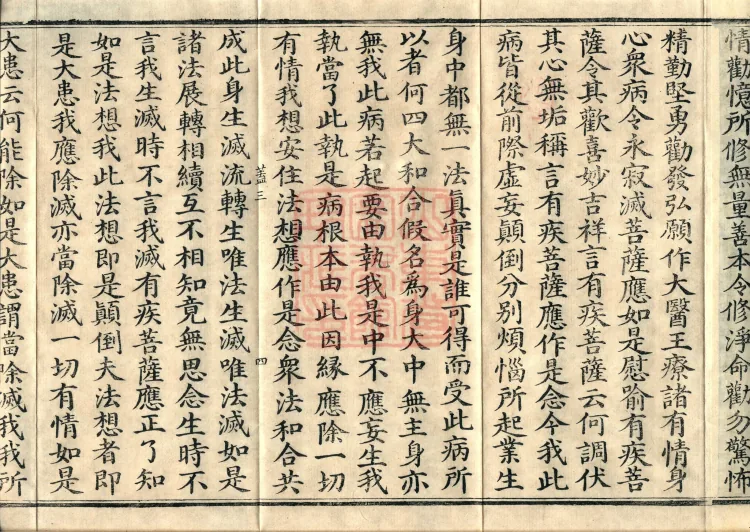 情勸憶所修無量善本令修淨命勸勿驚怖
精勤堅勇勸發弘願作大醫王療諸有情身
心衆病令永寂滅菩薩應如是慰喻有疾菩
薩令其歡喜妙吉祥言有疾菩薩云何調伏
其心無垢稱言有疾菩薩應作是念今我此
病皆從前際虛妄顚倒分別煩惱所起業生
身中都無一法眞實是誰可得而受此病所
以者何四大和合假名爲身大中無主身亦
無我此病若起要由執我是中不應妄生我
執當了此執是病根本由此因緣應除一切
有情我想安住法想應作是念衆法和合共
蓋三
四
成此身生滅流轉生唯法生滅唯法滅如是
諸法展轉相續互不相知竟無思念生時不
言我生滅時不言我滅有疾菩薩應正了知
如是法想我此法想即是顚倒夫法想者即
是大患我應除滅亦當除滅一切有情如是
大患云何能除如是大患謂當除滅我我所